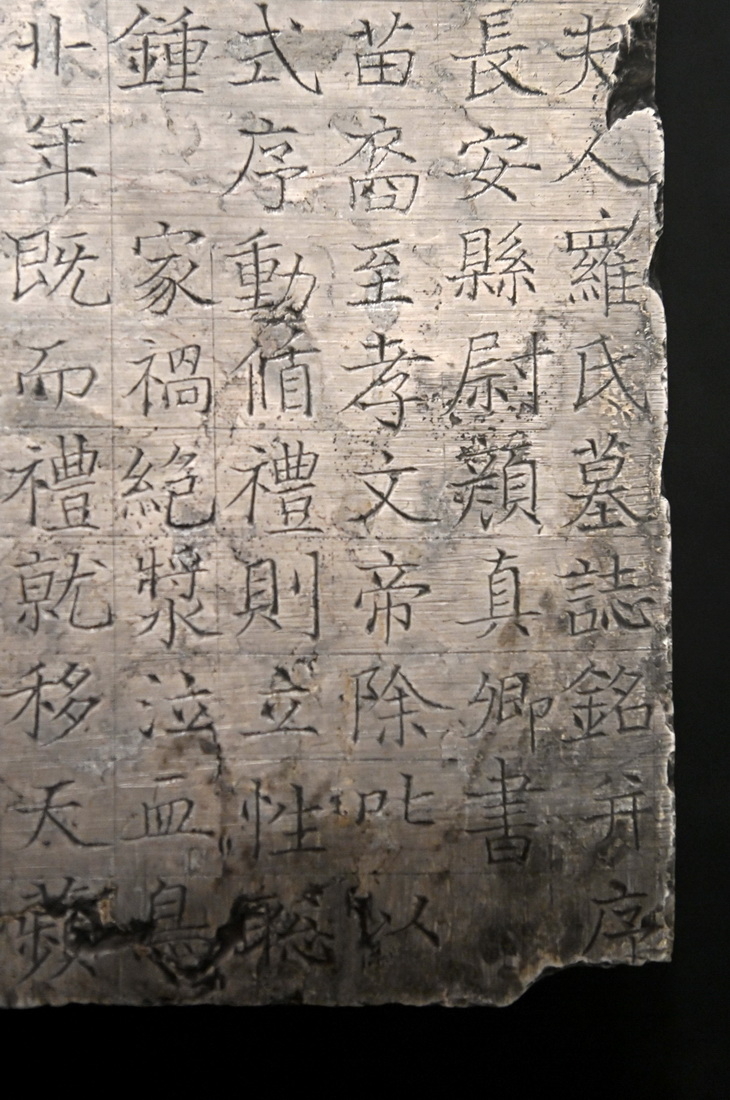 夫人羅氏墓誌銘并序
長安縣尉顏真卿書
苗裔至孝文帝除叱以
式序動循禮則立性聡
鍾 家禍絕漿泣血鳥
年既而禮就移天蘋